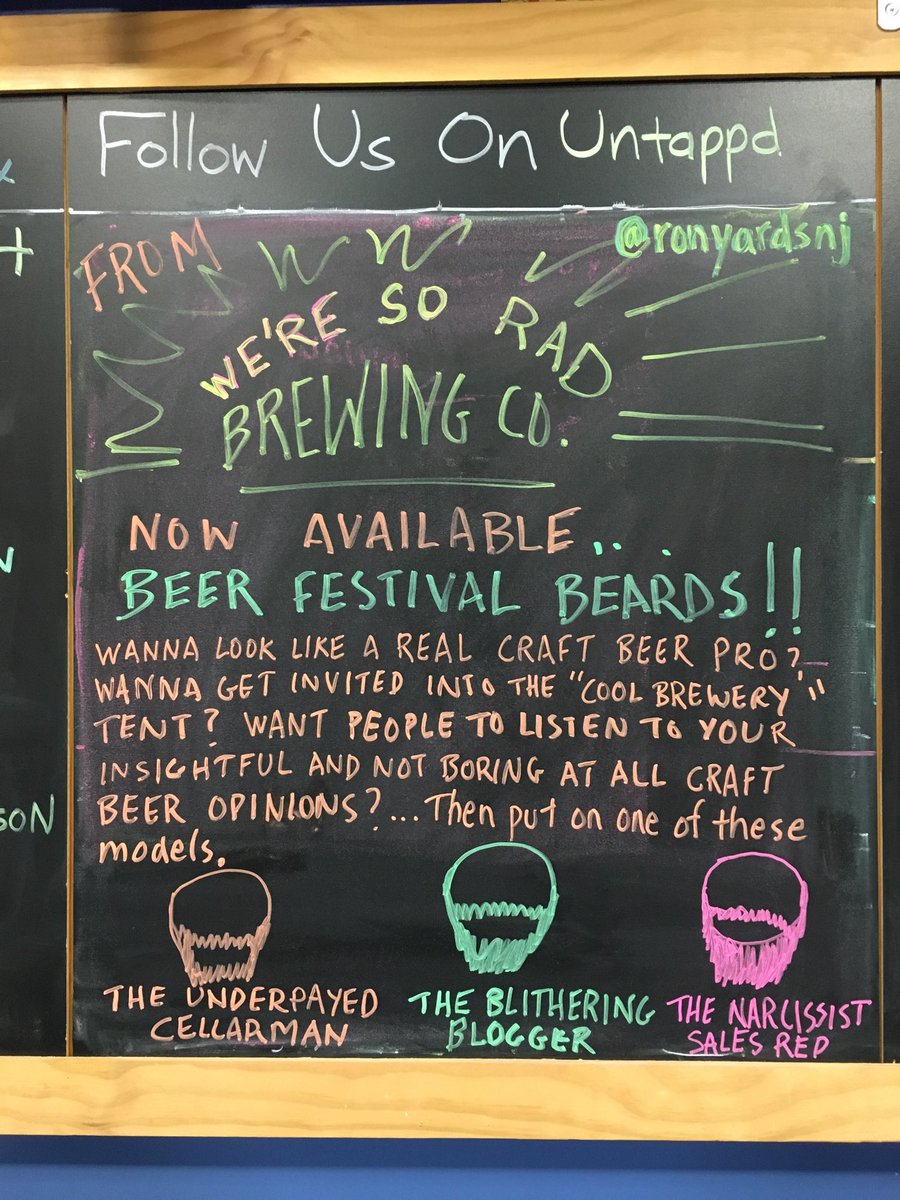 Follow Us On Untappd
@ronyardsnj
FROM
WE'RE SO RAD
BREWING CO.
NOW AVAILABLE..
BEER FESTIVAL BEARDS!!
WANNA LOOK LIKE A REAL CRAFT BEER PRO?
WANNA GET INVITED INTO THE "COOL BREWERY"
TENT? WANT PEOPLE TO LISTEN TO YOUR
INSIGHTFUL AND NOT BORING AT ALL CRAFT
BEER OPINIONS?...Then put on one of these
models.
THE UNDERPAYED
CELLARMAN
THE BLITHERING
BLOGGER
THE NARCISSIST
SALES REP
+
SON